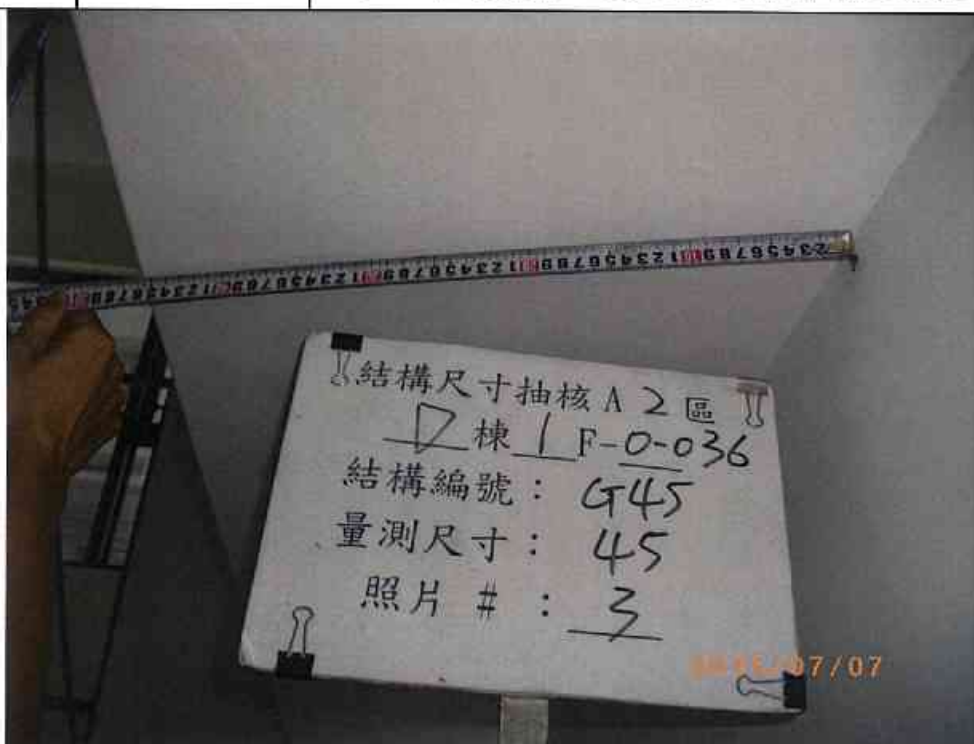 結構尺寸抽核 A 2 區
D 棟 1 F-0-036
結構編號： G45
量測尺寸： 45
照片 # ： 3
/07/07